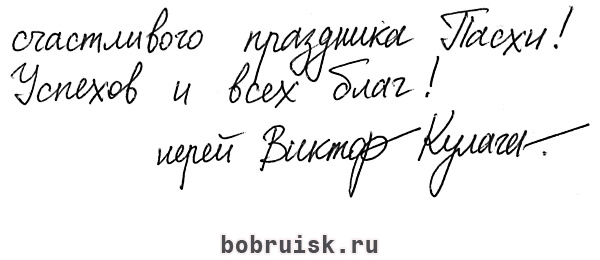 счастливого праздника Пасхи!
Успехов и всех благ!
иерей Виктор Кулага.
bobruisk.ru